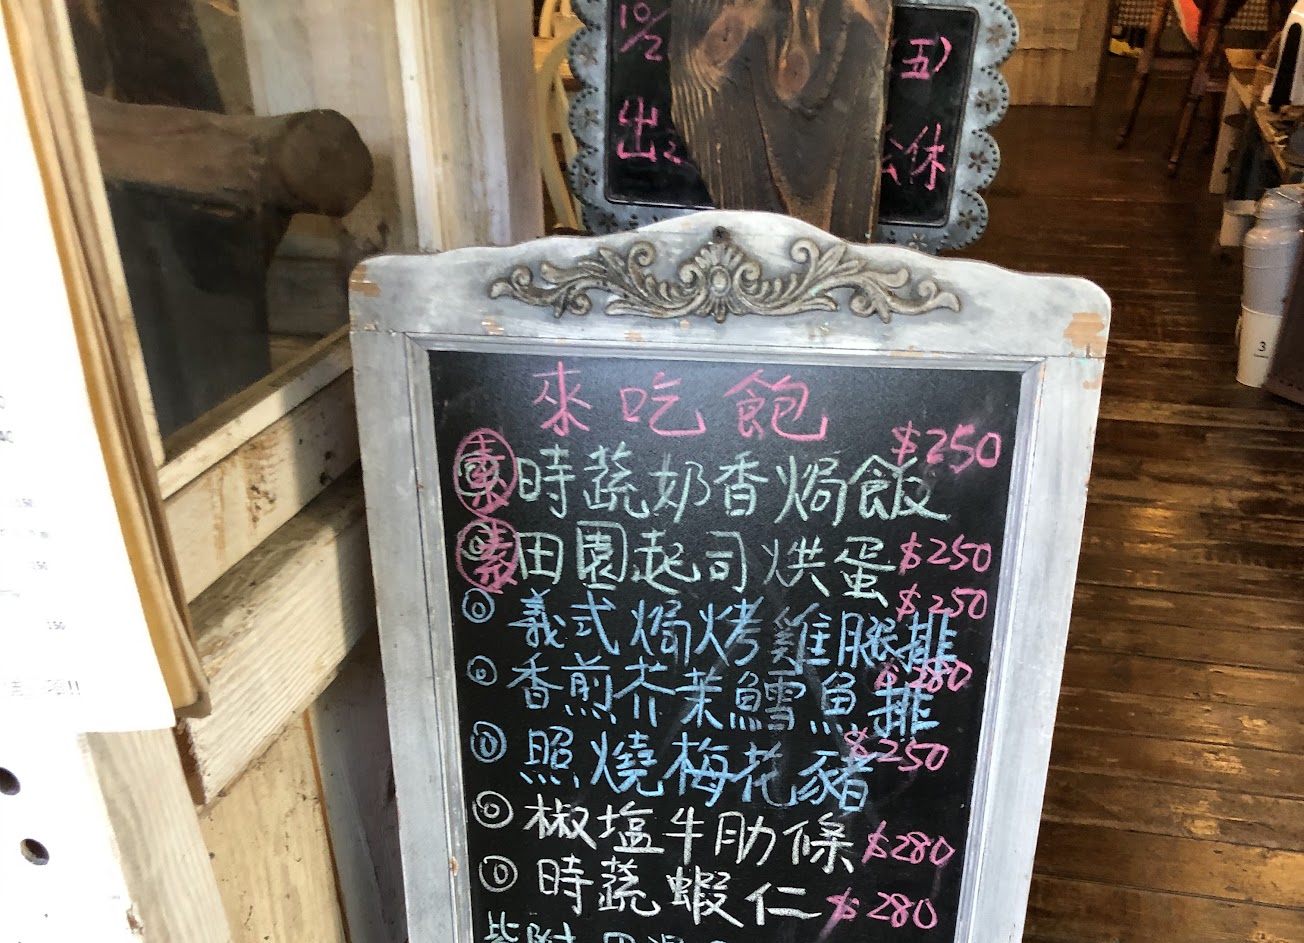 10/2
(五)
出
休
來吃飽
素 時蔬奶香焗飯 $250
素 田園起司烘蛋 $250
義式焗烤雞腿排 $250
香煎芥茉鱈魚排 $280
照燒梅花豬 $250
椒塩牛肋條 $280
時蔬蝦仁 $280
3